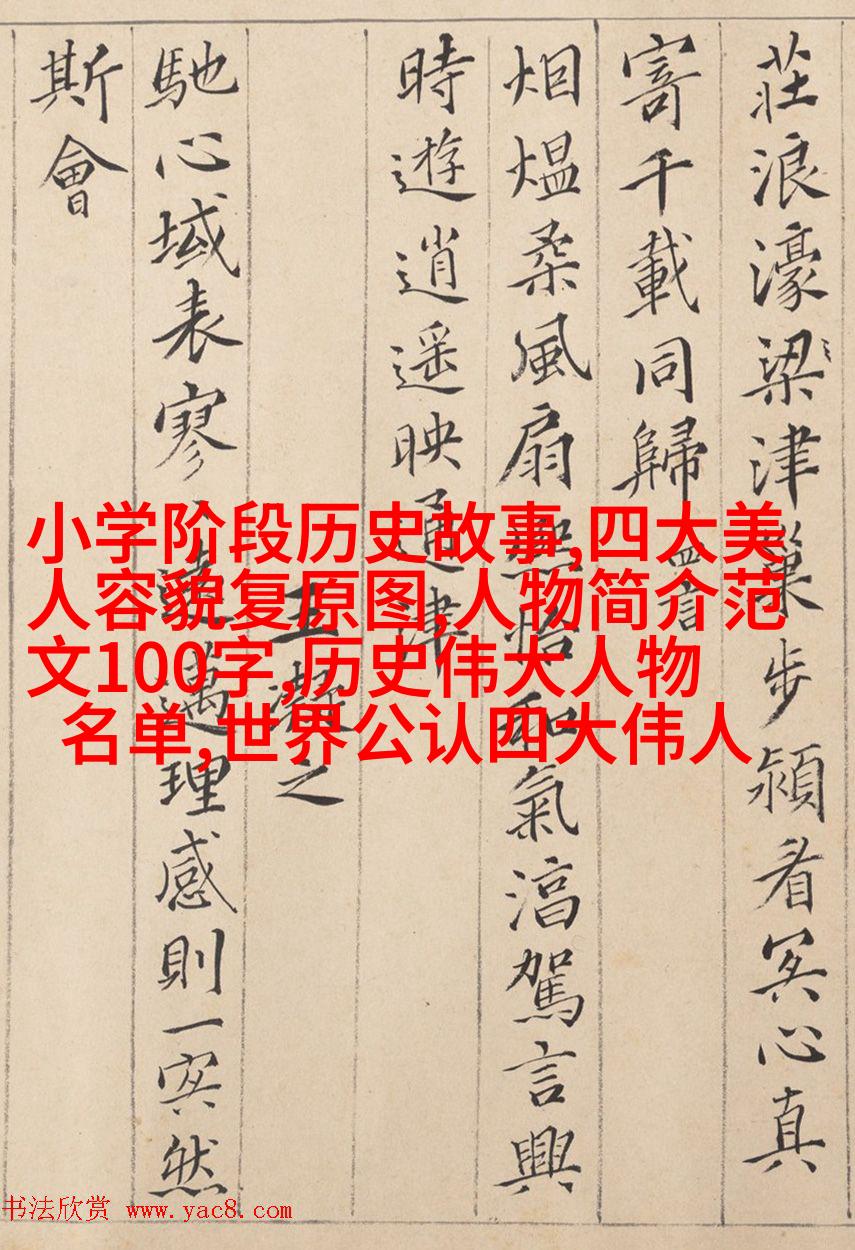 莊浪濠梁津巢步潁看冥心真
寄千載同歸 四言
烟煴柔風扇熙怡和氣淯駕言興
時遊逍遥映通津
王凝之
馳心域表寥寥遠邁理感則一冥然
斯會
小学阶段历史故事,四大美
人容貌复原图,人物简介范
文100字,历史伟大人物
名单,世界公认四大伟人
书法欣赏 www.yac8.com